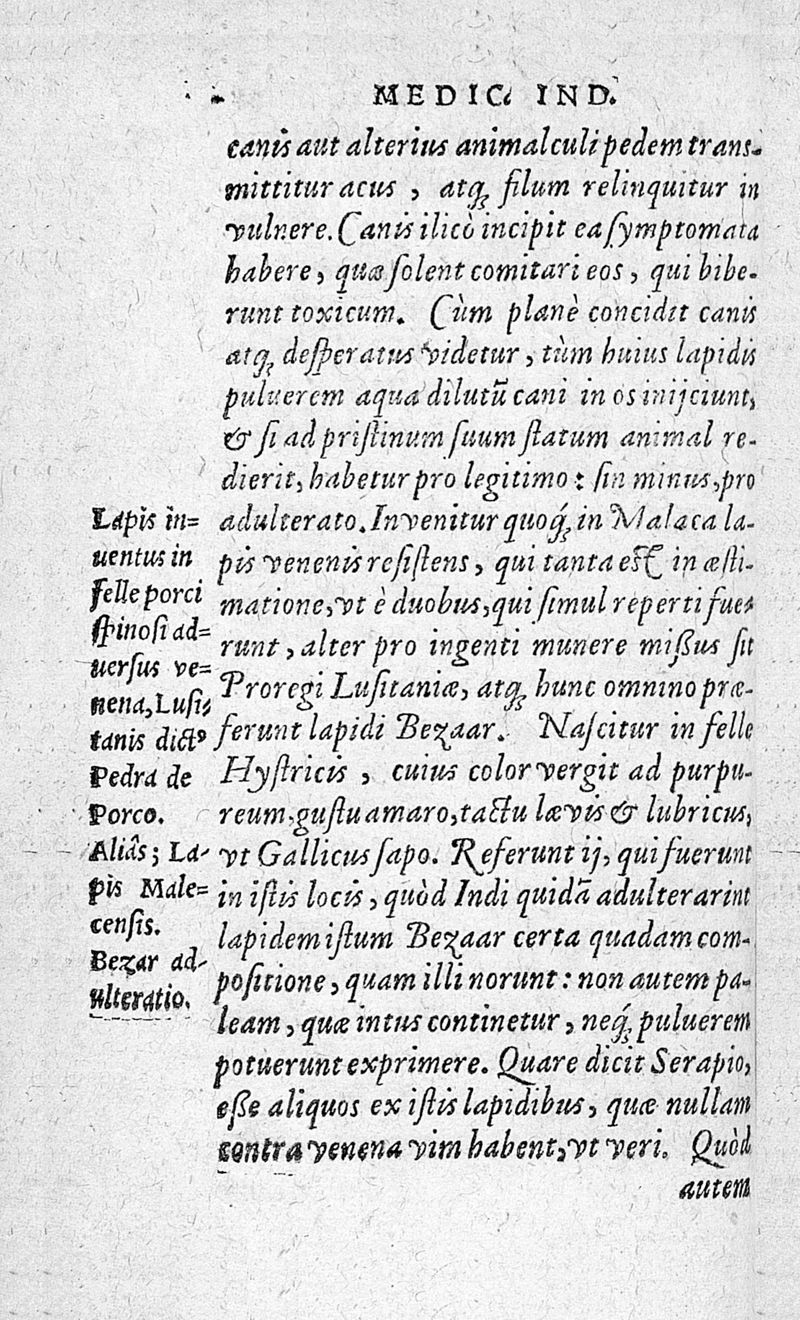 MEDIC. IND.
canis aut alterius animalculi pedem trans-
mittitur acus, atq; filum relinquitur in
vulnere. Canis ilicò incipit ea ſymptomata
habere, quæ ſolent comitari eos, qui bibe-
runt toxicum. Cùm planè concidit canis
atq; deſperatus videtur, tùm huius lapidis
puluerem aqua dilutũ cani in os inijciunt,
& ſi ad priſtinum ſuum ſtatum animal re-
dierit, habetur pro legitimo: ſin minus, pro
adulterato. Invenitur quoq́; in Malaca la-
pis venenis reſiſtens, qui tanta eſt in æſti-
matione, vt è duobus, qui ſimul reperti fue-
runt, alter pro ingenti munere miſſus ſit
Proregi Luſitaniæ, atq; hunc omnino præ-
ferunt lapidi Bezaar. Naſcitur in felle
Hyſtricis, cuius color vergit ad purpu-
reum, guſtu amaro, tactu lævis & lubricus,
vt Gallicus ſapo. Referunt ij, qui fuerunt
in iſtis locis, quòd Indi quidã adulterarint
lapidem iſtum Bezaar certa quadam com-
poſitione, quam illi norunt: non autem pa-
leam, quæ intus continetur, neq́; puluerem
potuerunt exprimere. Quare dicit Serapio,
eſſe aliquos ex iſtis lapidibus, quæ nullam
contra venena vim habent, vt veri. Quòd
autem
Lapis in=
uentus in
felle porci
ſpinoſi ad=
uerſus ve=
nena, Luſi=
tanis dictꝰ
Pedra de
Porco.
Aliâs; La-
pis Male=
cenſis.
Bezar ad-
ulteratio.